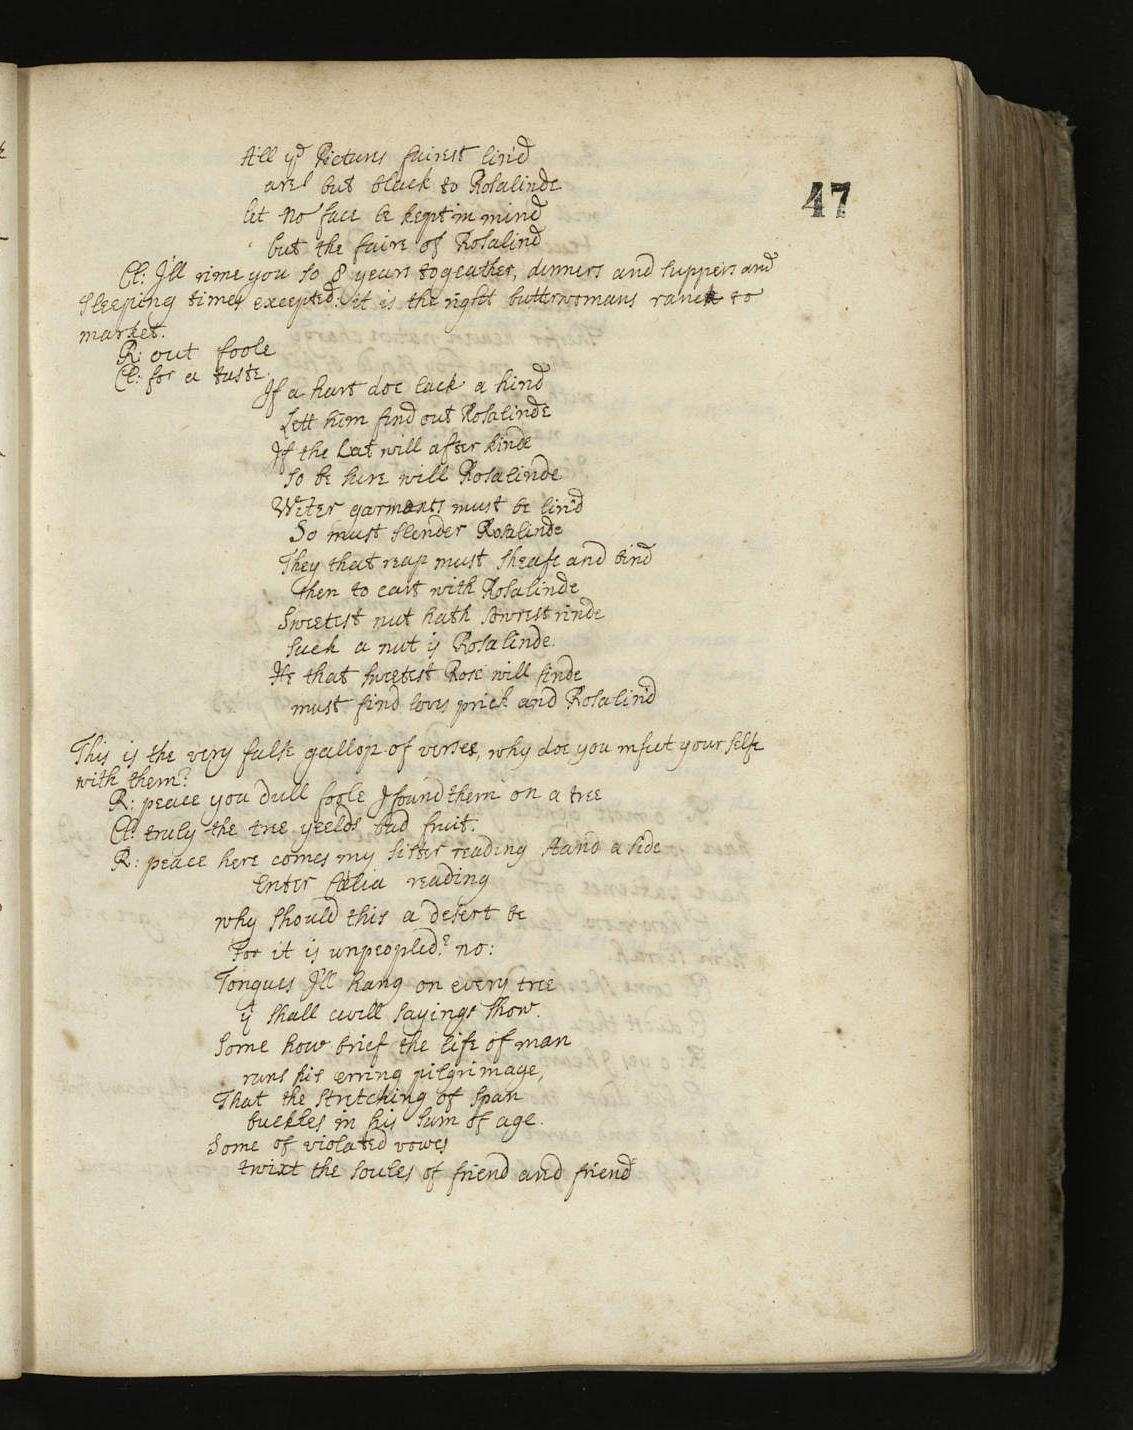 All yᵉ Pictures fairest lin'd
are but black to Rosalinde
47
let no face be kept in mind
but the faire of Rosalind
Cl: I'll rime you so 8 years togeather, dinners and suppers and
sleeping times excepted: it is the right butterwomans ranck to
market.
R: out foole
Cl: for a taste.
If a hart doe lack a hind
Lett him find out Rosalinde
If the Cat will after kinde
so be sure will Rosalinde
Winter garments must be lin'd
So must slender Rosalinde
They that reap must sheafe and bind
then to cart with Rosalinde
Sweetest nut hath sowrest rinde
such a nut is Rosalinde.
He that sweetest Rose will finde
must find loves prick and Rosalin'd
This is the very false gallop of verses, why doe you infect your selfe
with them?
R: peace you dull foole I found them on a tree
Cl: truly the tree yeelds bad fruit.
R: peace here comes my sister reading stand aside
Enter Cælia reading
why should this a desert be
For it is unpeopled? no:
Tongues I'll hang on every tree
yᵗ shall civill sayings show.
Some how brief the life of man
runs his erring pilgrimage,
That the stretching of span
buckles in his sum of age.
Some of violated vowes
twixt the soules of friend and friend